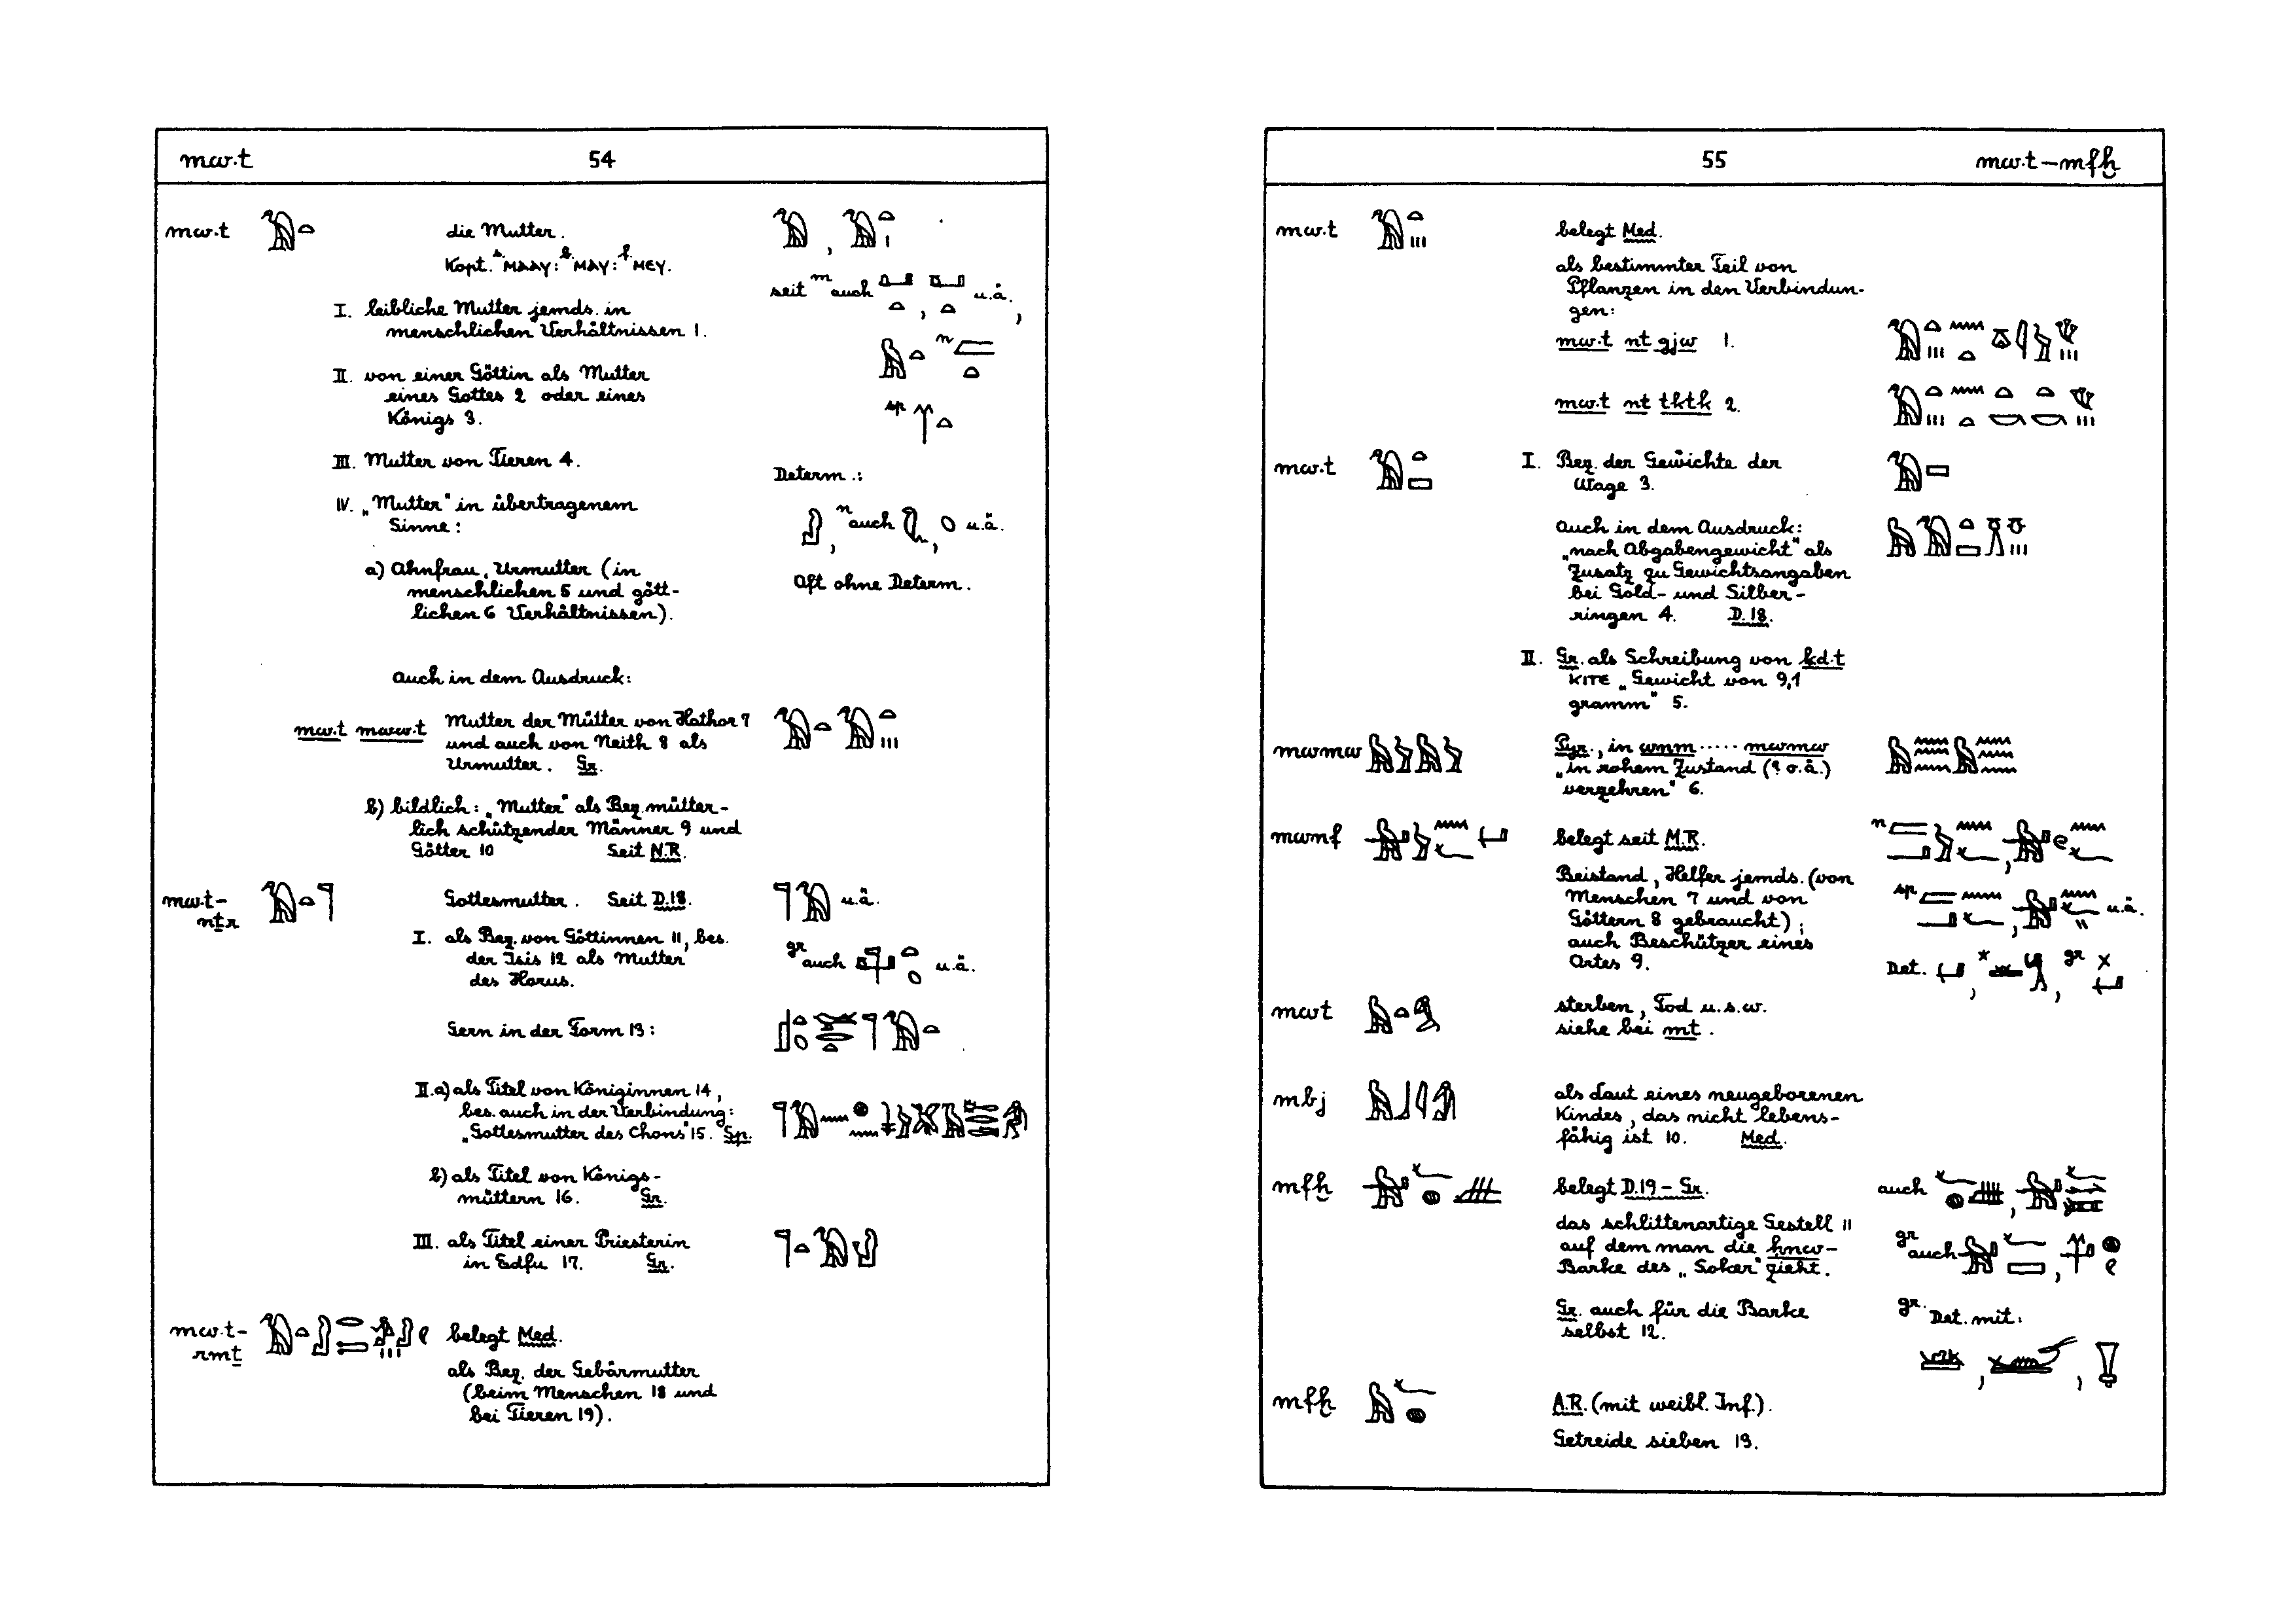 mw.t 54
mw.t die Mutter.
Kopt. s. ⲘⲀⲀⲨ: b. ⲘⲀⲨ: f. ⲘⲈⲨ.
seit m auch u.ä.,
I. leibliche Mutter jemds. in
menschlichen Verhältnissen 1.
n
II. von einer Göttin als Mutter
eines Gottes 2 oder eines
Königs 3.
sp
III. Mutter von Tieren 4.
Determ.:
IV. „Mutter" in übertragenem
Sinne:
, n auch , u.ä.
a) Ahnfrau, Urmutter (in
menschlichen 5 und gött-
lichen 6 Verhältnissen).
Oft ohne Determ.
Auch in dem Ausdruck:
mw.t mww.t Mutter der Mütter von Hathor 7
und auch von Neith 8 als
Urmutter. Gr.
b) bildlich: „Mutter" als Bez. mütter-
lich schützender Männer 9 und
Götter 10 Seit N.R.
mw.t-
nṯr Gottesmutter. Seit D.18. u.ä.
I. als Bez. von Göttinnen 11, bes.
der Isis 12 als Mutter
des Horus.
gr auch u.ä.
Gern in der Form 13:
II. a) als Titel von Königinnen 14,
bes. auch in der Verbindung:
„Gottesmutter des Chons" 15. Sp.
b) als Titel von Königs-
müttern 16. Gr.
III. als Titel einer Priesterin
in Edfu 17. Gr.
mw.t-
rmṯ belegt Med.
als Bez. der Gebärmutter
(beim Menschen 18 und
bei Tieren 19).
55 mw.t – mfḫ
mw.t belegt Med.
als bestimmter Teil von
Pflanzen in den Verbindun-
gen:
mw.t nt gjw 1.
mw.t nt tktk 2.
mw.t I. Bez. der Gewichte der
Wage 3.
Auch in dem Ausdruck:
„nach Abgabengewicht" als
Zusatz zu Gewichtsangaben
bei Gold- und Silber-
ringen 4. D.18.
II. Gr. als Schreibung von ḳd.t
KITE „Gewicht von 9,1
gramm" 5.
mwmw Pyr., in wnm ..... mwmw
„in rohem Zustand (? o.ä.)
verzehren" 6.
mwnf belegt seit M.R. n
Beistand, Helfer jemds. (von
Menschen 7 und von
Göttern 8 gebraucht);
auch Beschützer eines
Ortes 9.
sp , u.ä.
Det. , * , gr
mwt sterben, Tod u.s.w.
siehe bei mt.
mbj als Laut eines neugeborenen
Kindes, das nicht lebens-
fähig ist 10. Med.
mfḫ belegt D.19 – Gr. auch
das schlittenartige Gestell 11
auf dem man die ḥnw-
Barke des „Soker" zieht.
gr auch
Gr. auch für die Barke
selbst 12.
gr. Det. mit:
mfḫ A.R. (mit weibl. Inf.).
Getreide sieben 13.